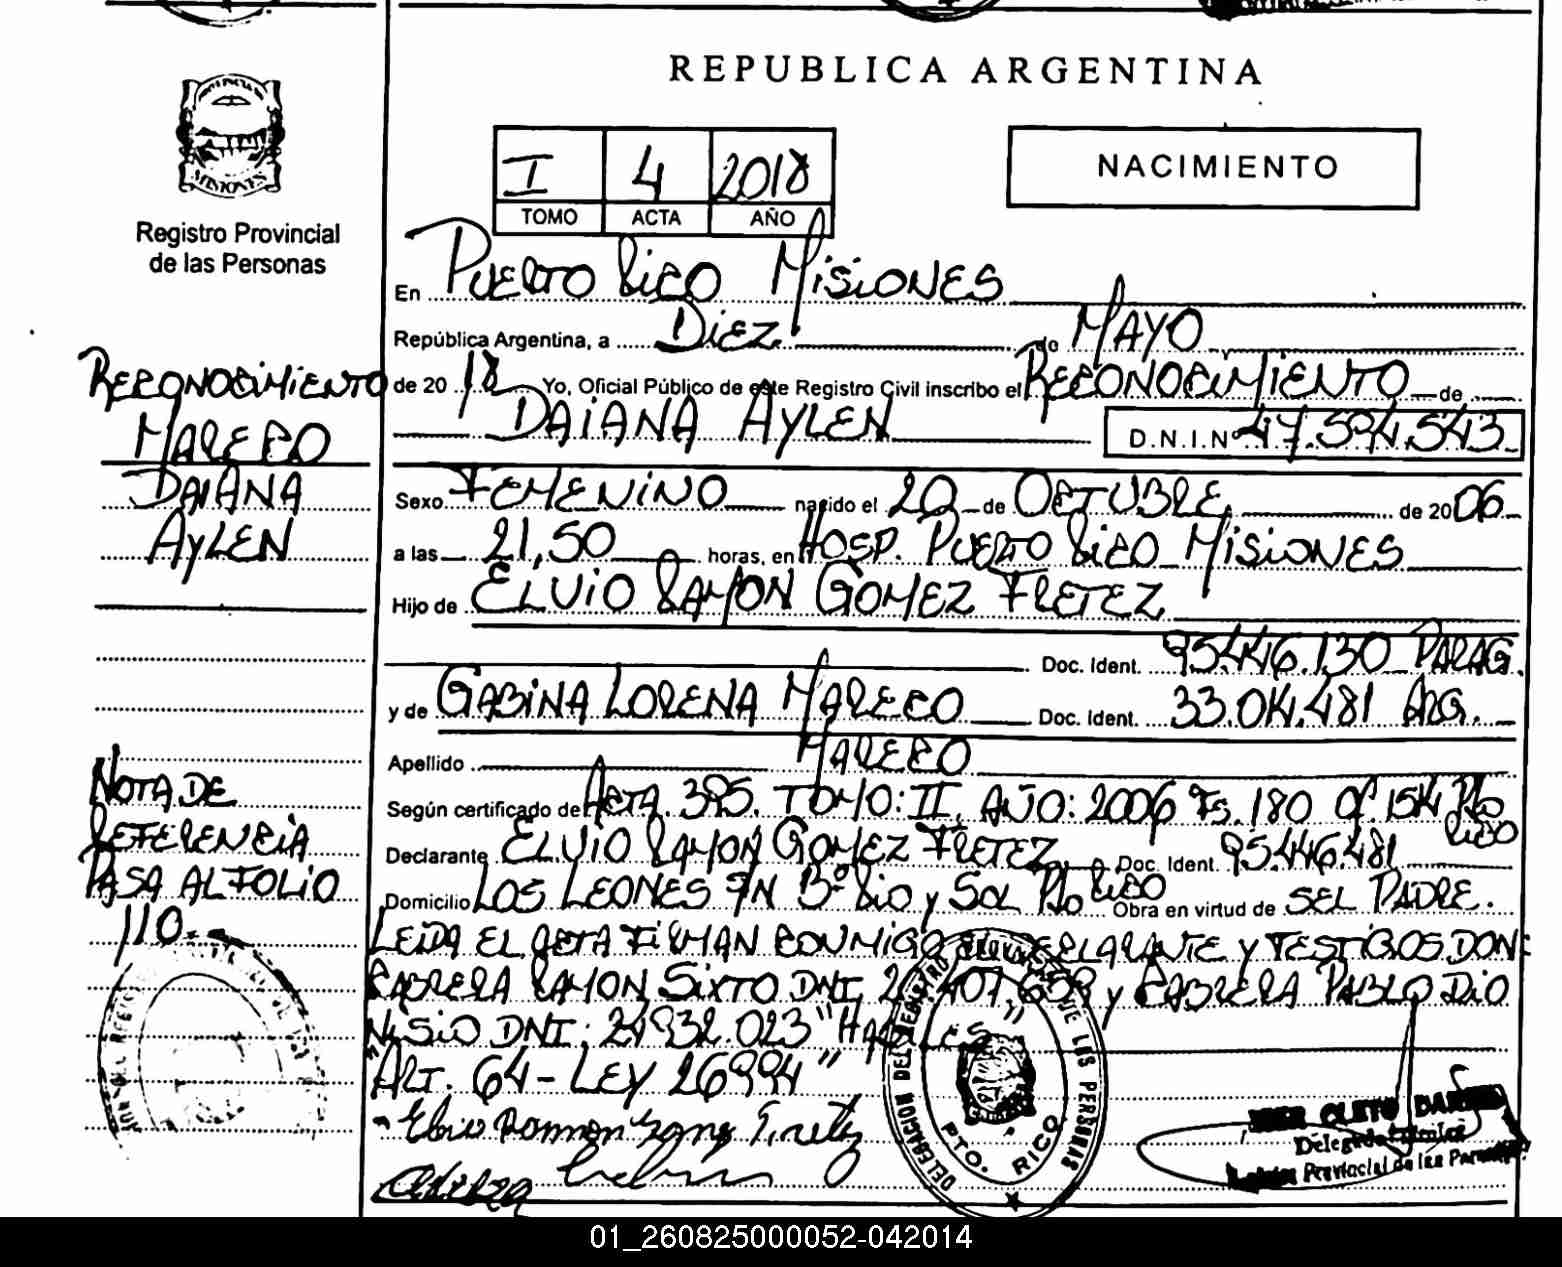 REPUBLICA ARGENTINA
MISIONES
Registro Provincial
de las Personas
I 4 2018
TOMO ACTA AÑO
NACIMIENTO
En Puerto Rico Misiones
República Argentina, a Diez de Mayo
de 20 18 Yo, Oficial Público de este Registro Civil inscribo el Reconocimiento de
Daiana Aylen D.N.I.Nº 47.594.543
Sexo Femenino nacido el 20 de Octubre de 2006
a las 21,50 horas, en Hosp. Puerto Rico Misiones
Hijo de Elvio Ramon Gomez Fretez
Doc. Ident. 95.446.130 Parag.
y de Gabina Lorena Mareco Doc. Ident. 33.014.481 Arg.
Apellido Mareco
Según certificado de Acta. 395. Tomo: II, Año: 2006 Fs. 180 Of. 1514 Pto Rico
Declarante Elvio Ramon Gomez Fretez Doc. Ident. 95.446.481
Domicilio Los Leones S/N Bº Rio y Sol Pto Rico Obra en virtud de Ser Padre.
Leida el acta firman conmigo el declarante y testigos Don:
Cabrera Ramon Sixto DNI, 407,658 y Cabrera Pablo Dio
nisio DNI: 24932.023 "Habiles"
"Art. 64 - Ley 26994"
Reconocimiento
Mareco
Daiana
Aylen
Nota de
Referencia
Pasa al Folio
110
DELEGACION DEL REGISTRO DE LAS PERSONAS
PTO. RICO
Delegado
Provincial de las
01_260825000052-042014